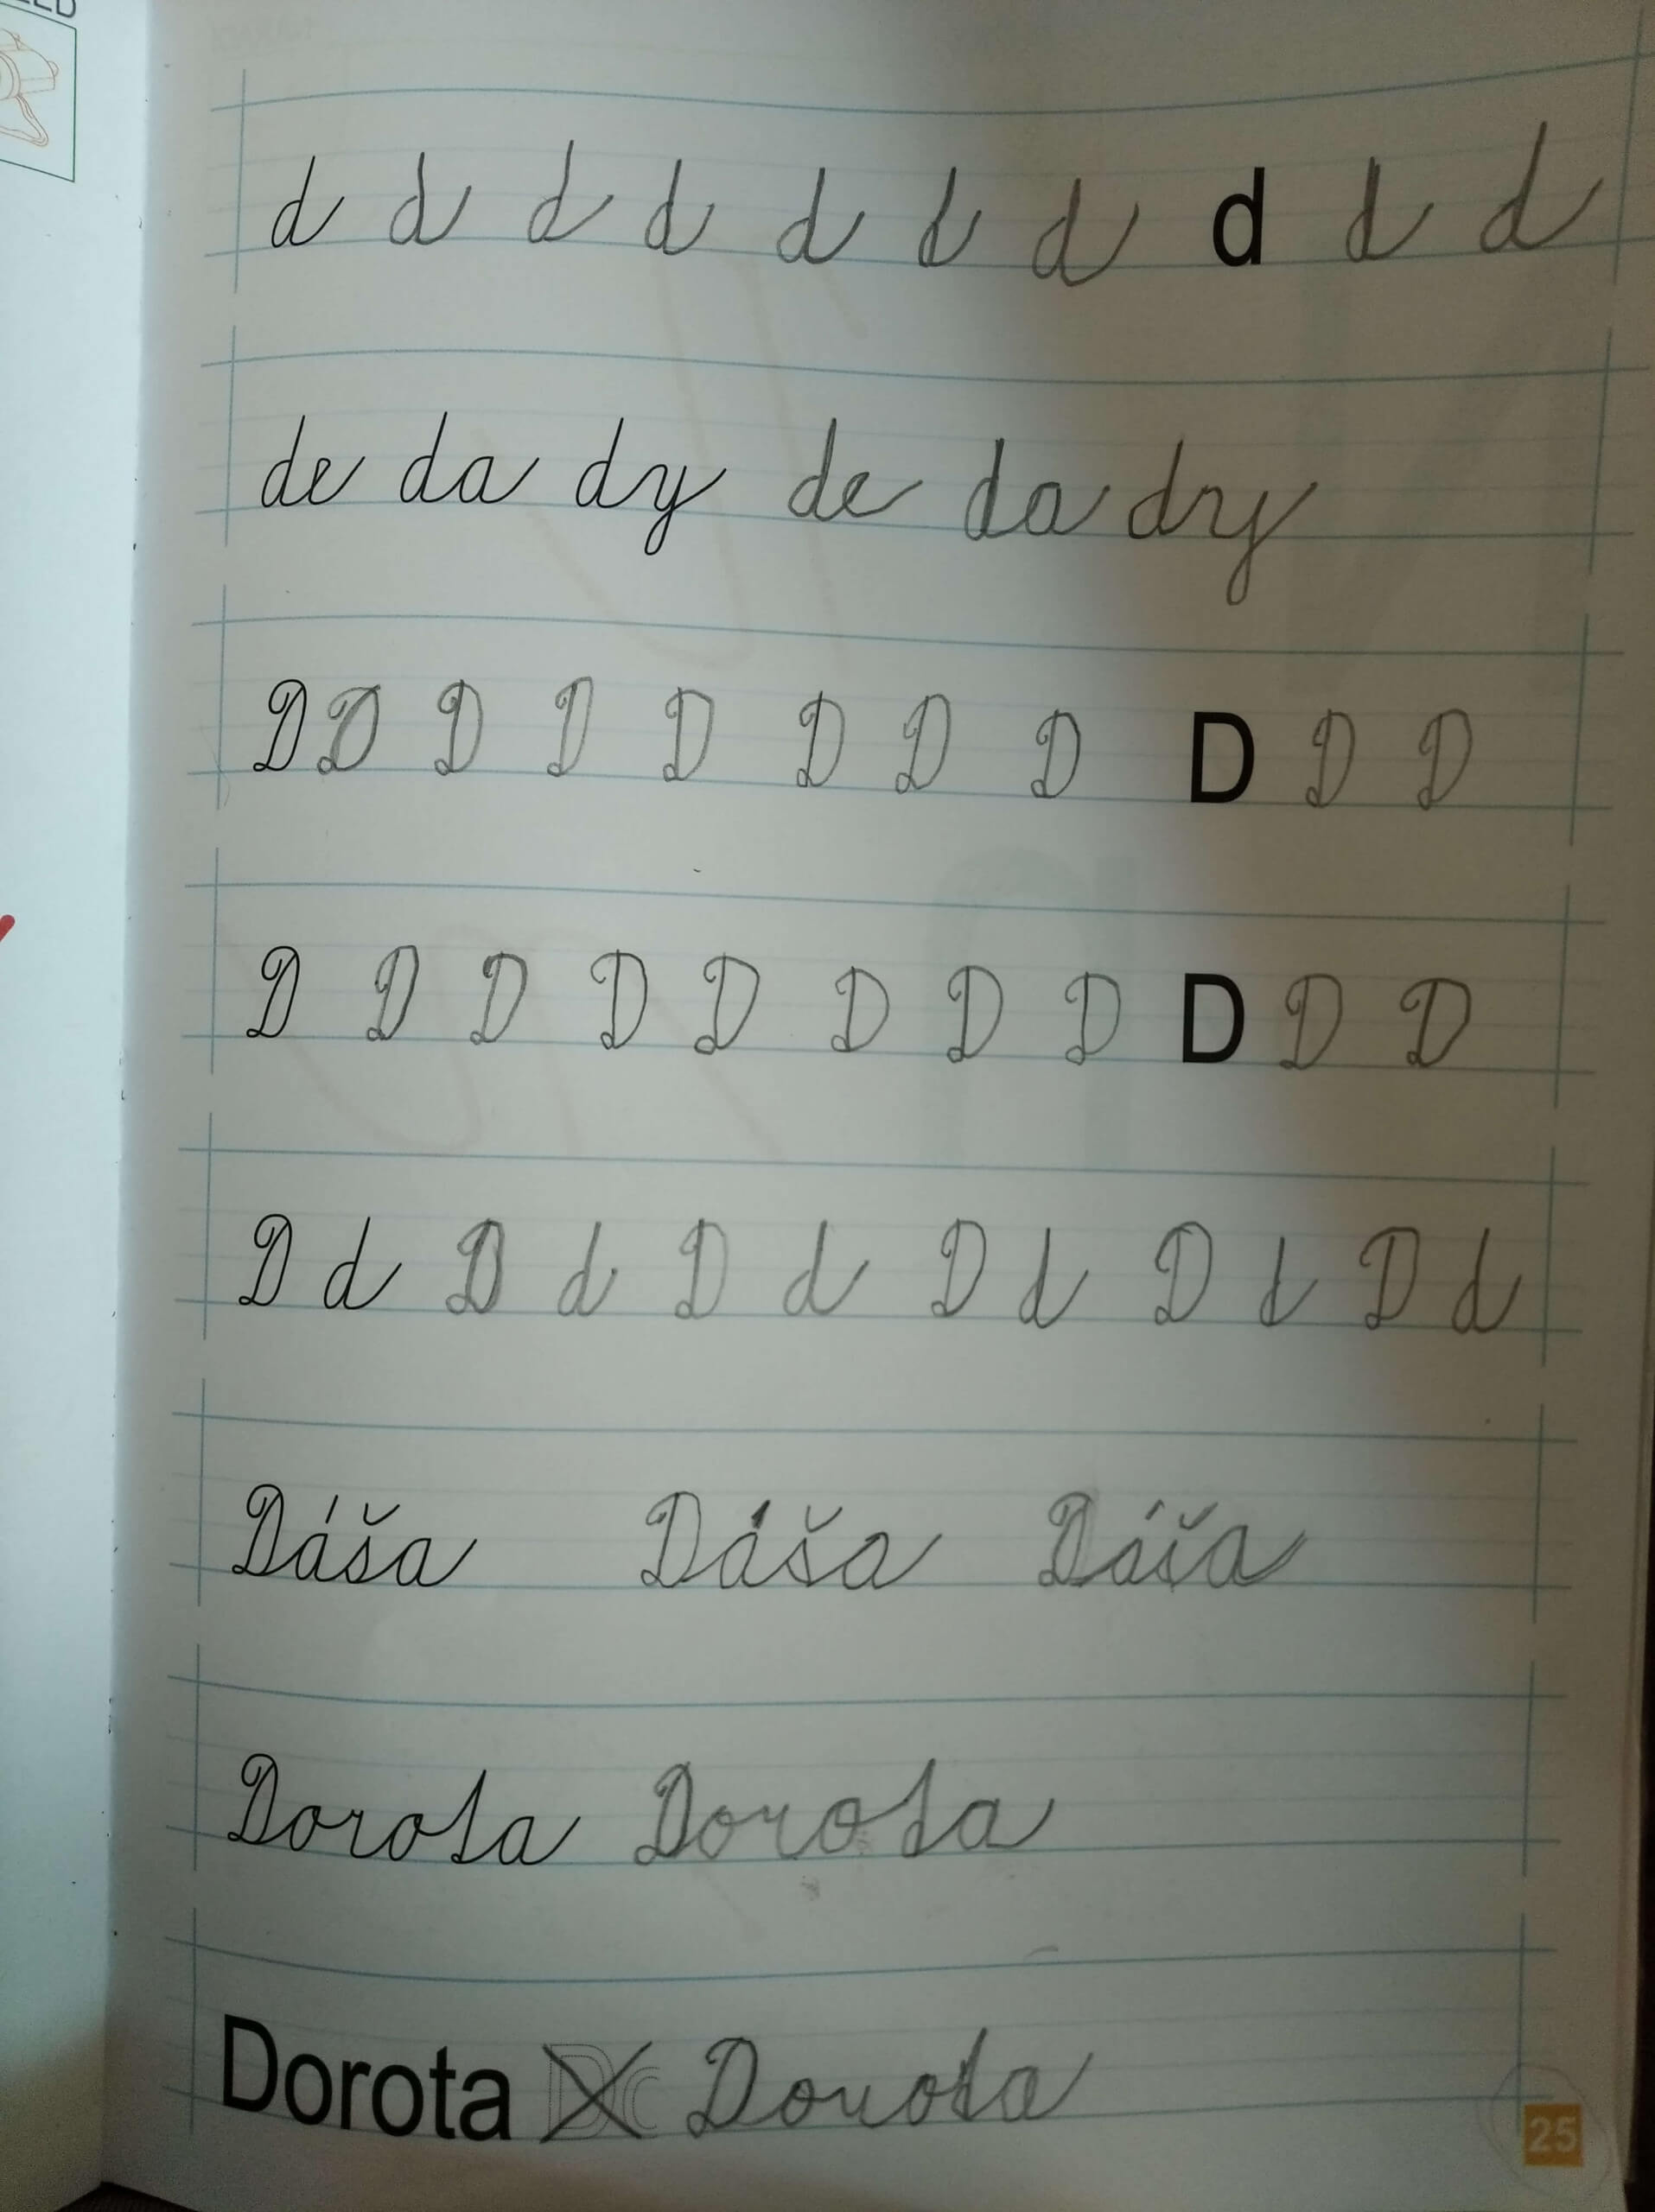 d d d d d d d d d d
de da dy de da dy
D D D D D D D D D D D
D D D D D D D D D D D
D d D d D d D d D d D d
Dáša Dáša Dáša
Dorota Dorota
Dorota Dorota
25